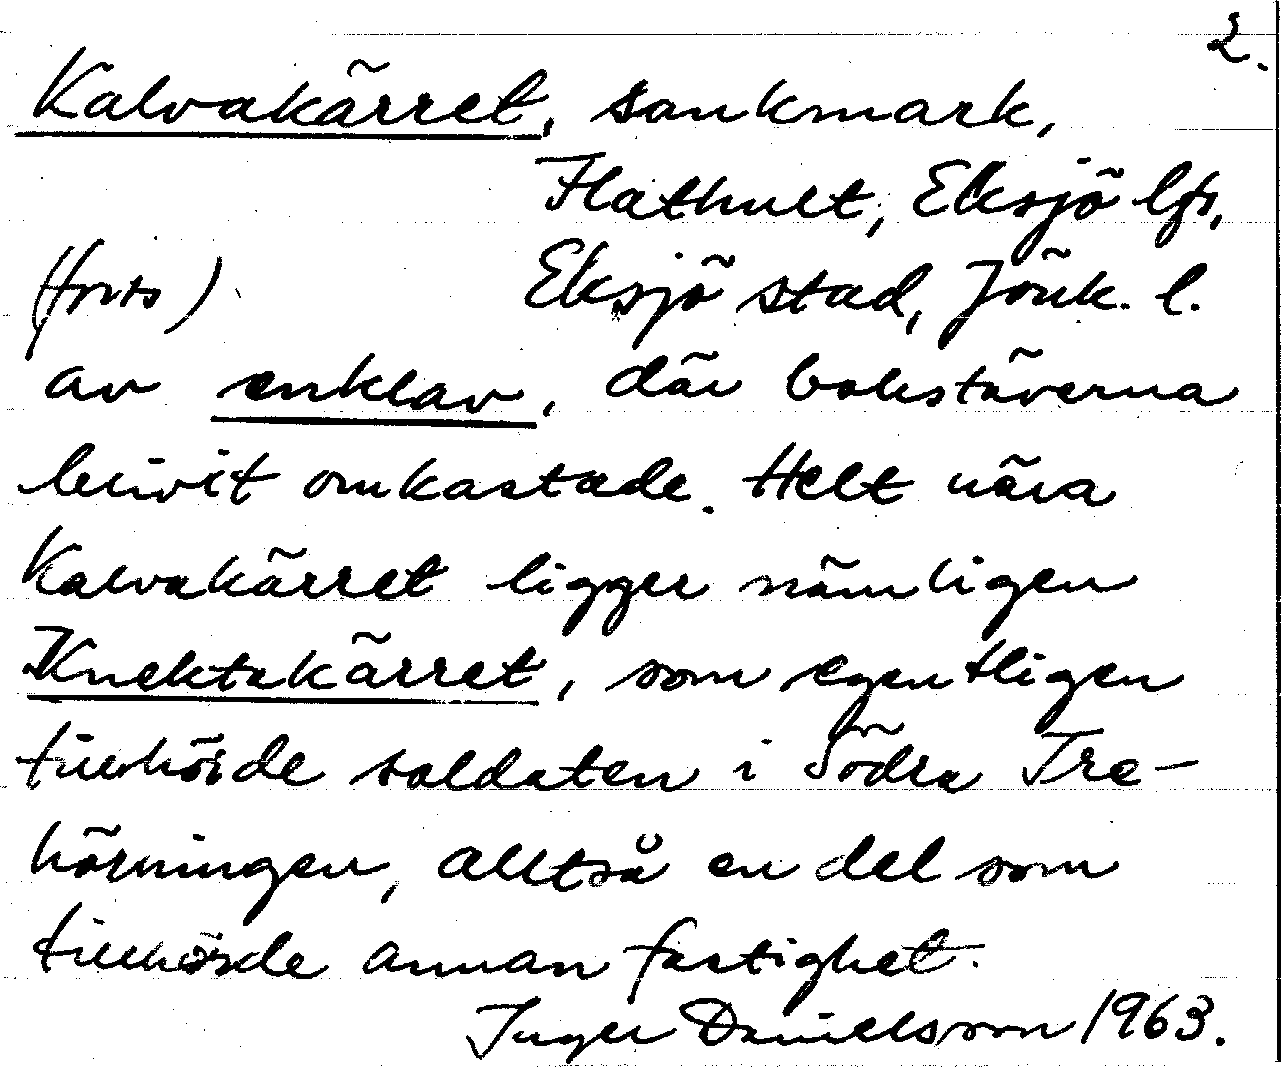 2.
Kalvakärret, sankmark,
Flathult, Eksjö lfs,
(forts) Eksjö stad, Jönk. l.
av enklav, där bokstäverna
blivit omkastade. Helt nära
Kalvakärret ligger nämligen
Knektakärret, som egentligen
tillhörde soldaten i Södra Tre-
hörningen, alltså en del som
tillhörde annan fastighet.
Inger Danielsson 1963.